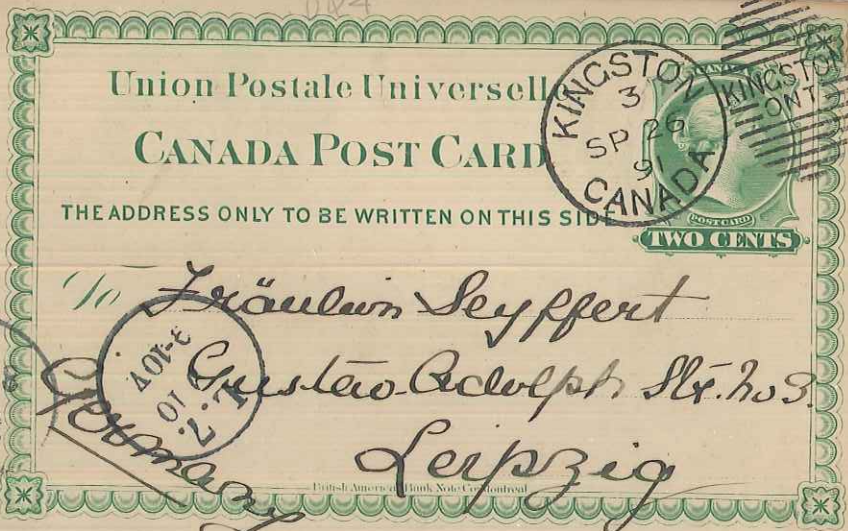 Union Postale Universelle
CANADA POST CARD
THE ADDRESS ONLY TO BE WRITTEN ON THIS SIDE
KINGSTON
3
SP 26
91
CANADA
KINGSTON
ONT
POST CARD
TWO CENTS
To Fräulein Seyffert
Gustav Adolph Str. No 3.
Leipzig
Germany
L.7.
10
British American Bank Note Co. Montreal